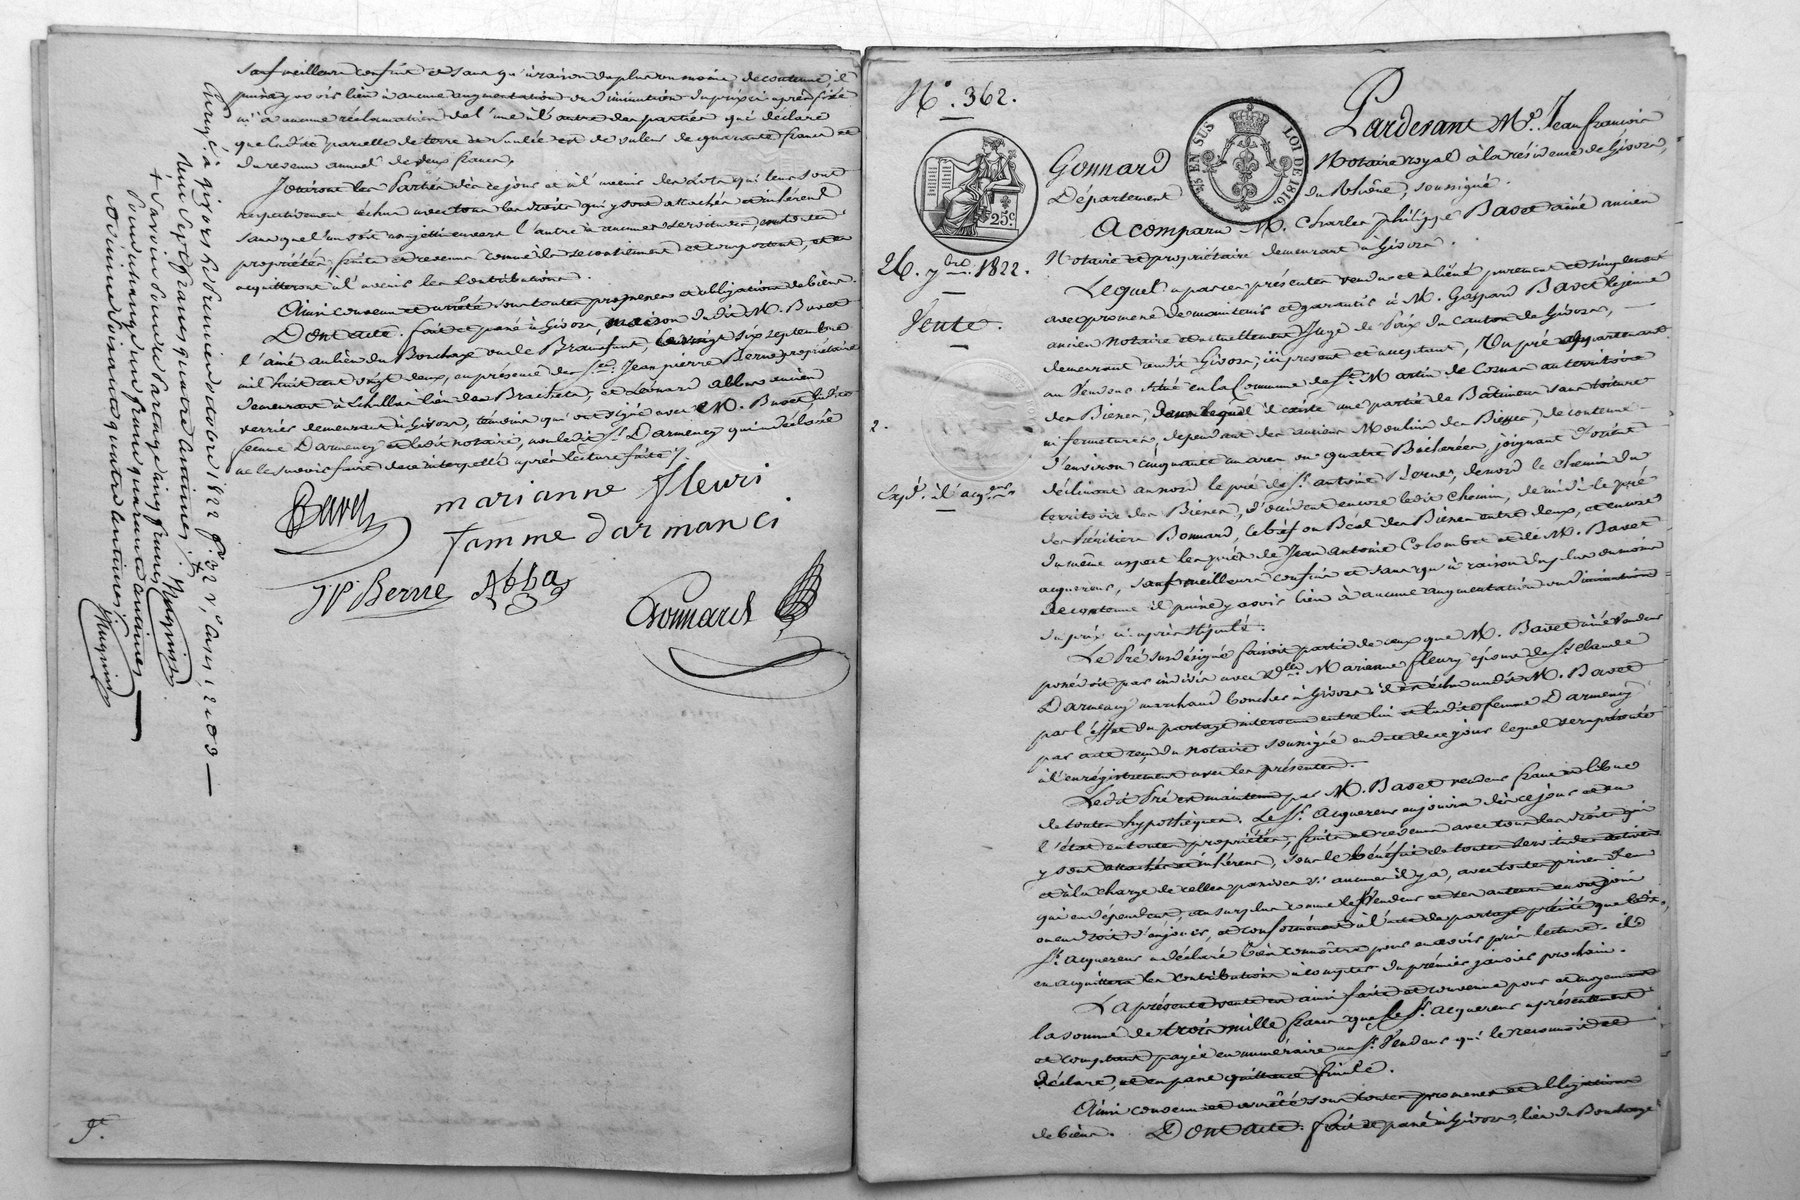 sauf meilleurs confins et sans qu'à raison du plus ou moins de contenue, il
puisse y avoir lieu à aucune augmentation ou diminution du prix ci après fixé
ni à aucune réclamation de l'une ni l'autre des parties qui déclare
que ladite parcelle de terre et saulée est de valeur de quarante francs et
du revenu annuel de deux francs,
Jouiront les Parties dès ce jour et à l'avenir des Lots qui leur sont
respectivement échus avec tous les droits qui y sont attachés et inhérens
sans que l'un soit assujetti envers l'autre à aucunes servitudes, en toutes
propriétés, fruits et revenus comme ils se contiennent et comportent, et en
acquitteront à l'avenir les contributions.
Ainsi convenu et arrêté sous toutes promesses et obligations de biens.
Dont acte. fait et passé à Givors, maison dudit M. Bavet
l'aîné au lieu du Bouchage ou de le Bransfant, le vingt six septembre
mil huit cent vingt deux, en présence des Srs. Jean pierre Berne propriétaire
demeurant à Echallas lieu des Brachets, et Léonard abba ancien
verrier demeurant à Givors, témoins qui ont signé avec M. Bavet ladite
femme D'armency et ledit notaire, non ledit Sr. D'armency qui a déclaré
ne le savoir faire de ce interpellé après lecture faite /.
Bavet
marianne fleuri
famme darmanci
JP Berne
Abba
Gonnard
Enregé. à givors le premier octobre 1822 fo. 32 vo. cases 1 2 et 3
Reçu Sept francs quatre centimes, +
Maguin
+ Savoir pour le partage cinq francs
Pour l'échange un franc quarante centimes
dixième soixante quatre centimes
Maguin
No. 362.
25 EN SUS
LOI DE 1816.
25c.
26. 7bre. 1822.
Vente.
2.
Expé. à l'acqr.
Pardevant Me. Jean françois
Gonnard Notaire royal à la résidence de Givors,
Département du Rhône, soussigné.
A comparu M. Charles philippe Bavet aîné ancien
Notaire et propriétaire demeurant à Givors.
Lequel a par ces présentes vendu et aliéné purement et simplement
avec promesse de maintenir et garantir à M. Gaspard Bavet le jeune
ancien notaire et actuellement Juge de Paix du canton de Givors,
demeurant audit Givors, ici présent et acceptant, Un pré appartenant
au Vendeur situé en la Commune de St. Martin de Cornas au territoire
des Bienes, dans lequel il existe une partie de Bâtimens sans toiture
ni fermetures, dépendant des anciens Moulins des Bienes, de contenue
d'environ cinquante un ares ou quatre Bicherées, joignant d'orient
déclinant au nord le pré de Sr. antoine Berne, de nord le chemin du
territoire des Bienes, d'occident encore ledit chemin, de midi le pré
des héritiers Bonnard, le bief ou Béal des Bienes entre deux, et encore
du même aspect les prés de Jean Antoine Colombet et de M. Bavet
acquereur, sauf meilleurs confins et sans qu'à raison du plus ou moins
de contenue il puisse y avoir lieu à aucune augmentation ou diminution
du prix ci après stipulé.
Le Pré susdésigné faisoit partie de ceux que M. Bavet aîné Vendeur
possédoit par indivis avec dlle. Marianne fleury épouse de Sr. claude
Darmency marchand boucher à Givors il est échu audit M. Bavet
par l'effet du partage intervenu entre lui et ladite femme D'armency
par acte reçu du notaire soussigné en date de ce jour lequel sera présenté
à l'enrégistrement avec les présentes.
Ledit Pré est maintenu par M. Bavet vendeur franc et libre
de toutes hypothèques. Le Sr. acquereur en jouira dès ce jour et en
l'état en toutes propriétés, fruits et revenus avec tous les droits qui
y sont attachés et inhérens, sous le bénéfice de toutes servitudes actives
et à la charge de celles passives s'aucunes il y a, avec toutes prises d'eau
qui en dépendent, au surplus comme le Vendeur et ses auteurs en ont joui
ou eu droit d'en jouir, et conformément à l'acte de partage précité que ledit
Sr. acquereur a déclaré bien connoître pour en avoir pris lecture. il
en acquittera les contributions à compter du premier janvier prochain.
La présente vente est ainsi faite et convenue pour et moyennant
la somme de trois mille francs que le Sr. acquereur a présentement
et comptant payée en numéraire au Sr. Vendeur qui le reconnoit et
déclare, et en passe quittance finale.
Ainsi convenu et arrêté sous toutes promesses et obligations
de biens. Dont acte. fait et passé à Givors, lieu du Bouchage